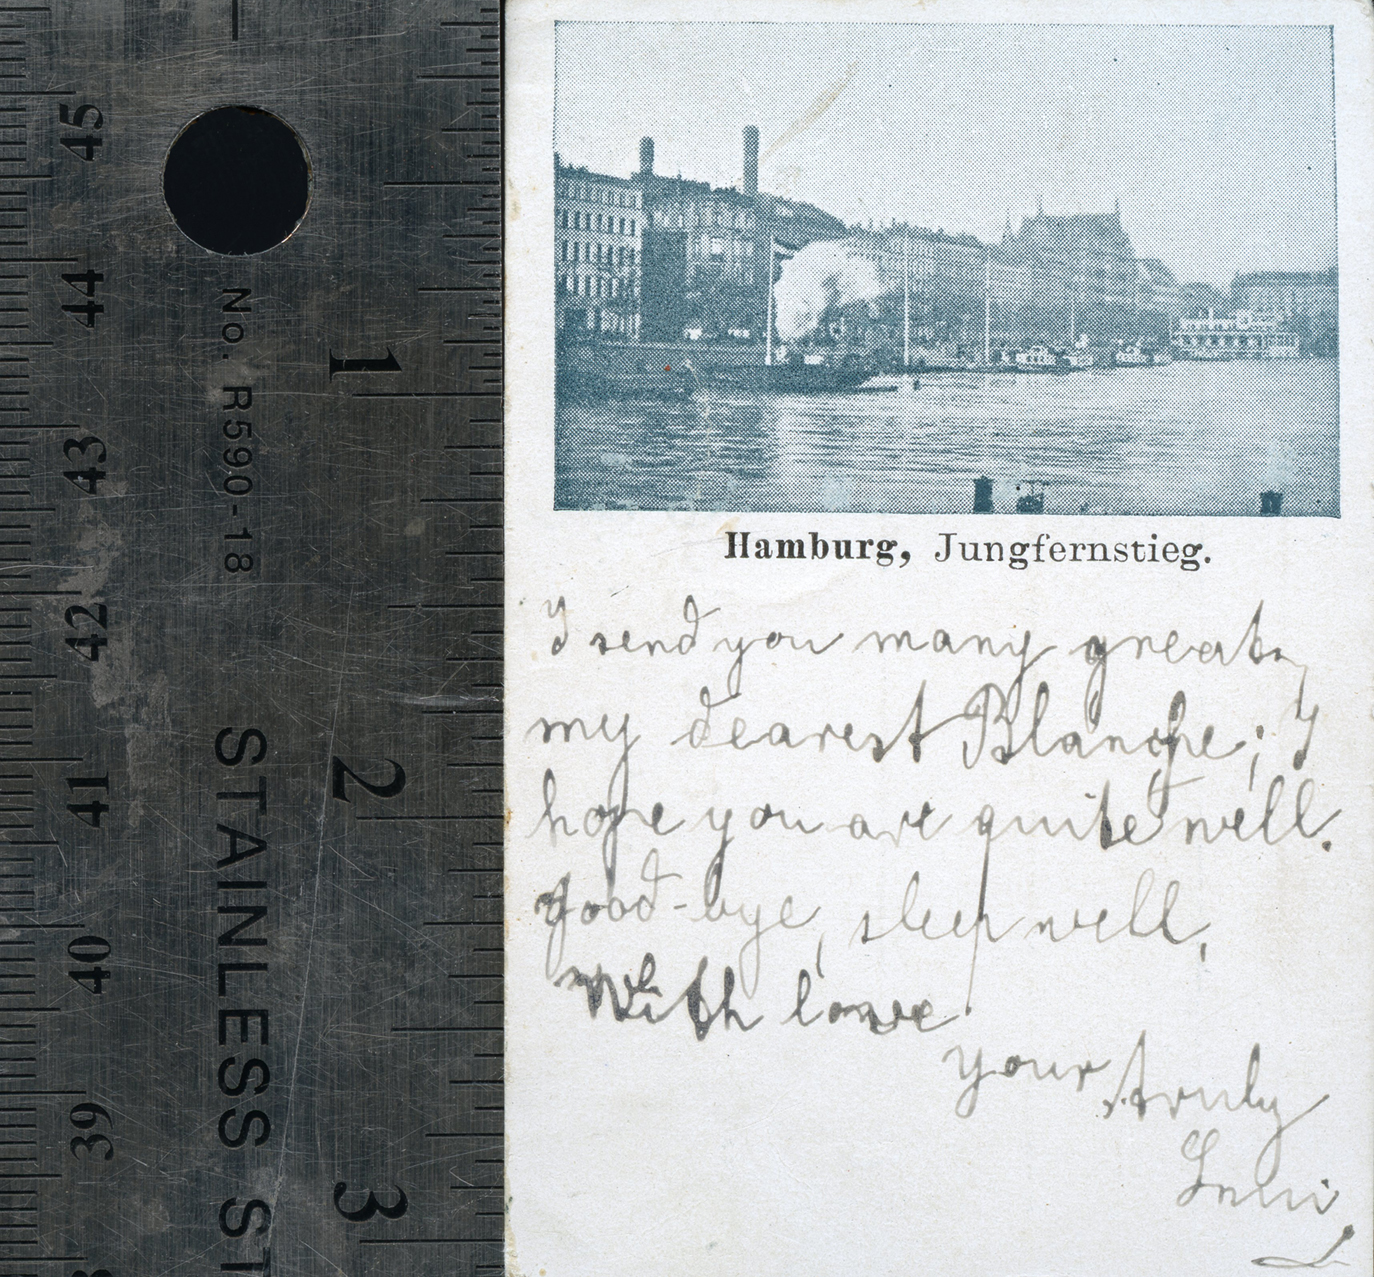 45
44
43
42
41
40
39
No. R590-18
STAINLESS ST
1
2
3
Hamburg, Jungfernstieg.
I send you many great,
my dearest Blanche; I
hope you are quite well.
Good-bye, sleep well,
With love
your truly